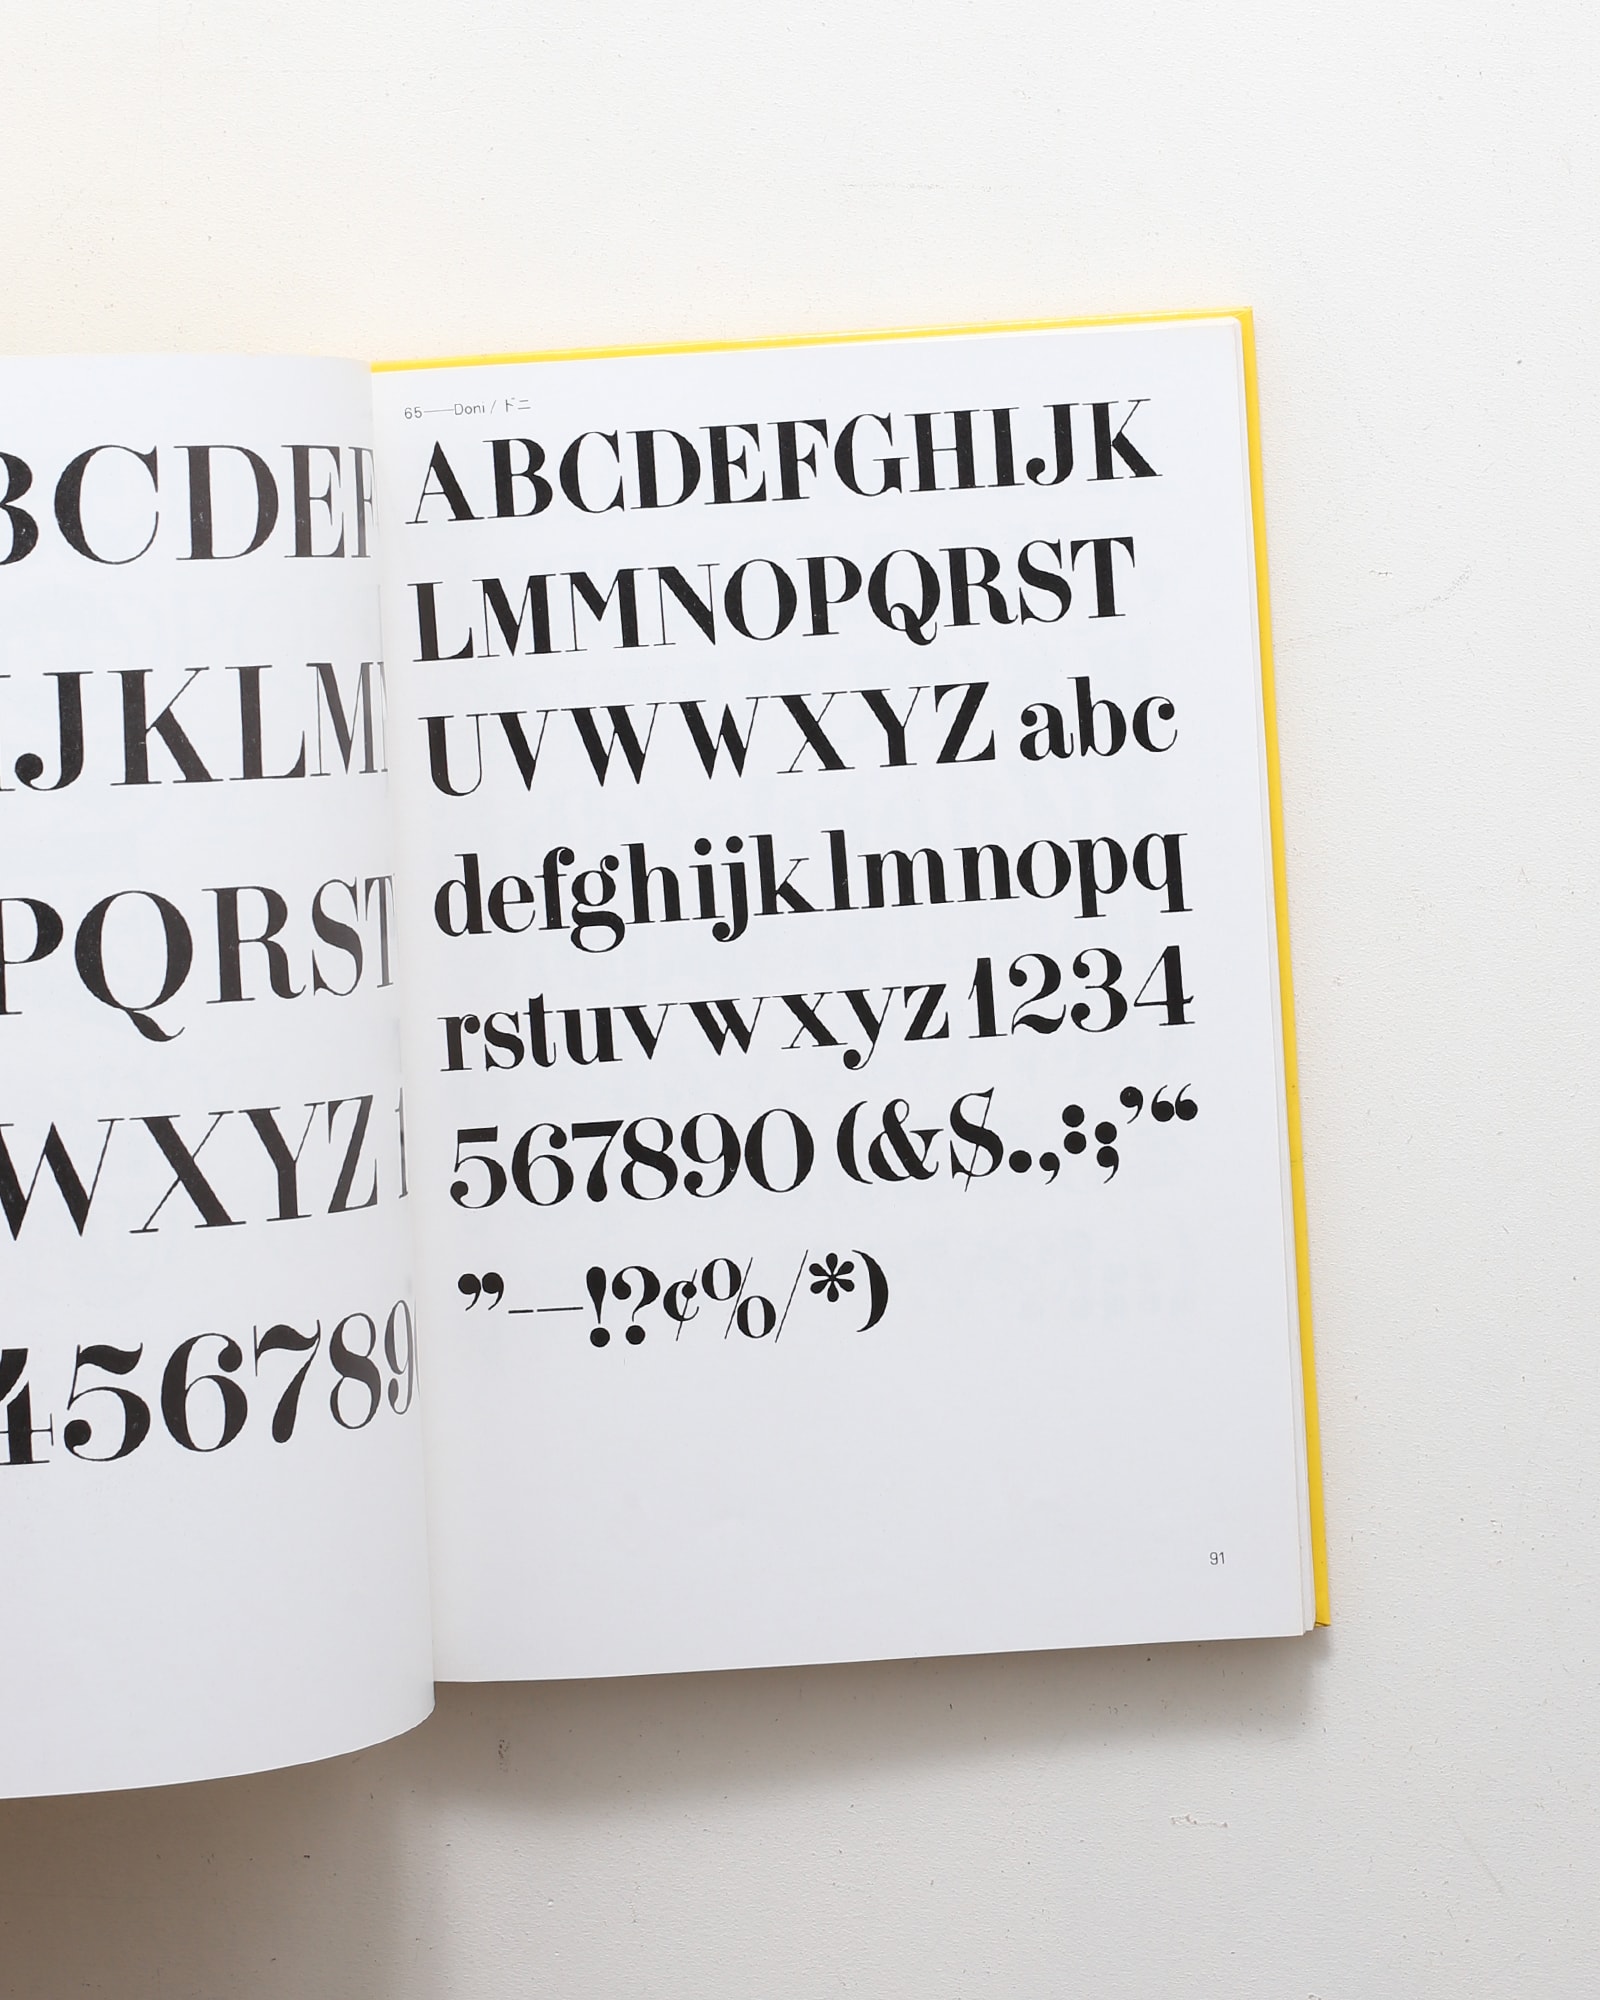 BCDEF
IJKLM
PQRST
WXYZ 1
456789
65——Doni / ドニ
ABCDEFGHIJK
LMMNOPQRST
UVWWXYZ abc
defghijklmnopq
rstuvwxyz1234
567890 (&$.,:;’“
”-—!?¢%/*)
91